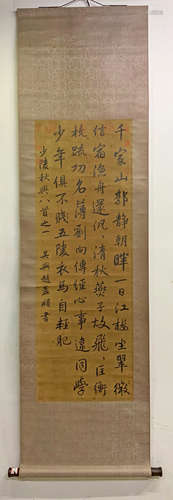 千家山郭靜朝暉一日江樓坐翠微
信宿漁舟還汎〻清秋燕子故飛〻匡衡
抗疏功名薄劉向傳經心事違同學
少年俱不賤五陵衣馬自輕肥
少陵秋興八首之一 吳興趙孟頫書